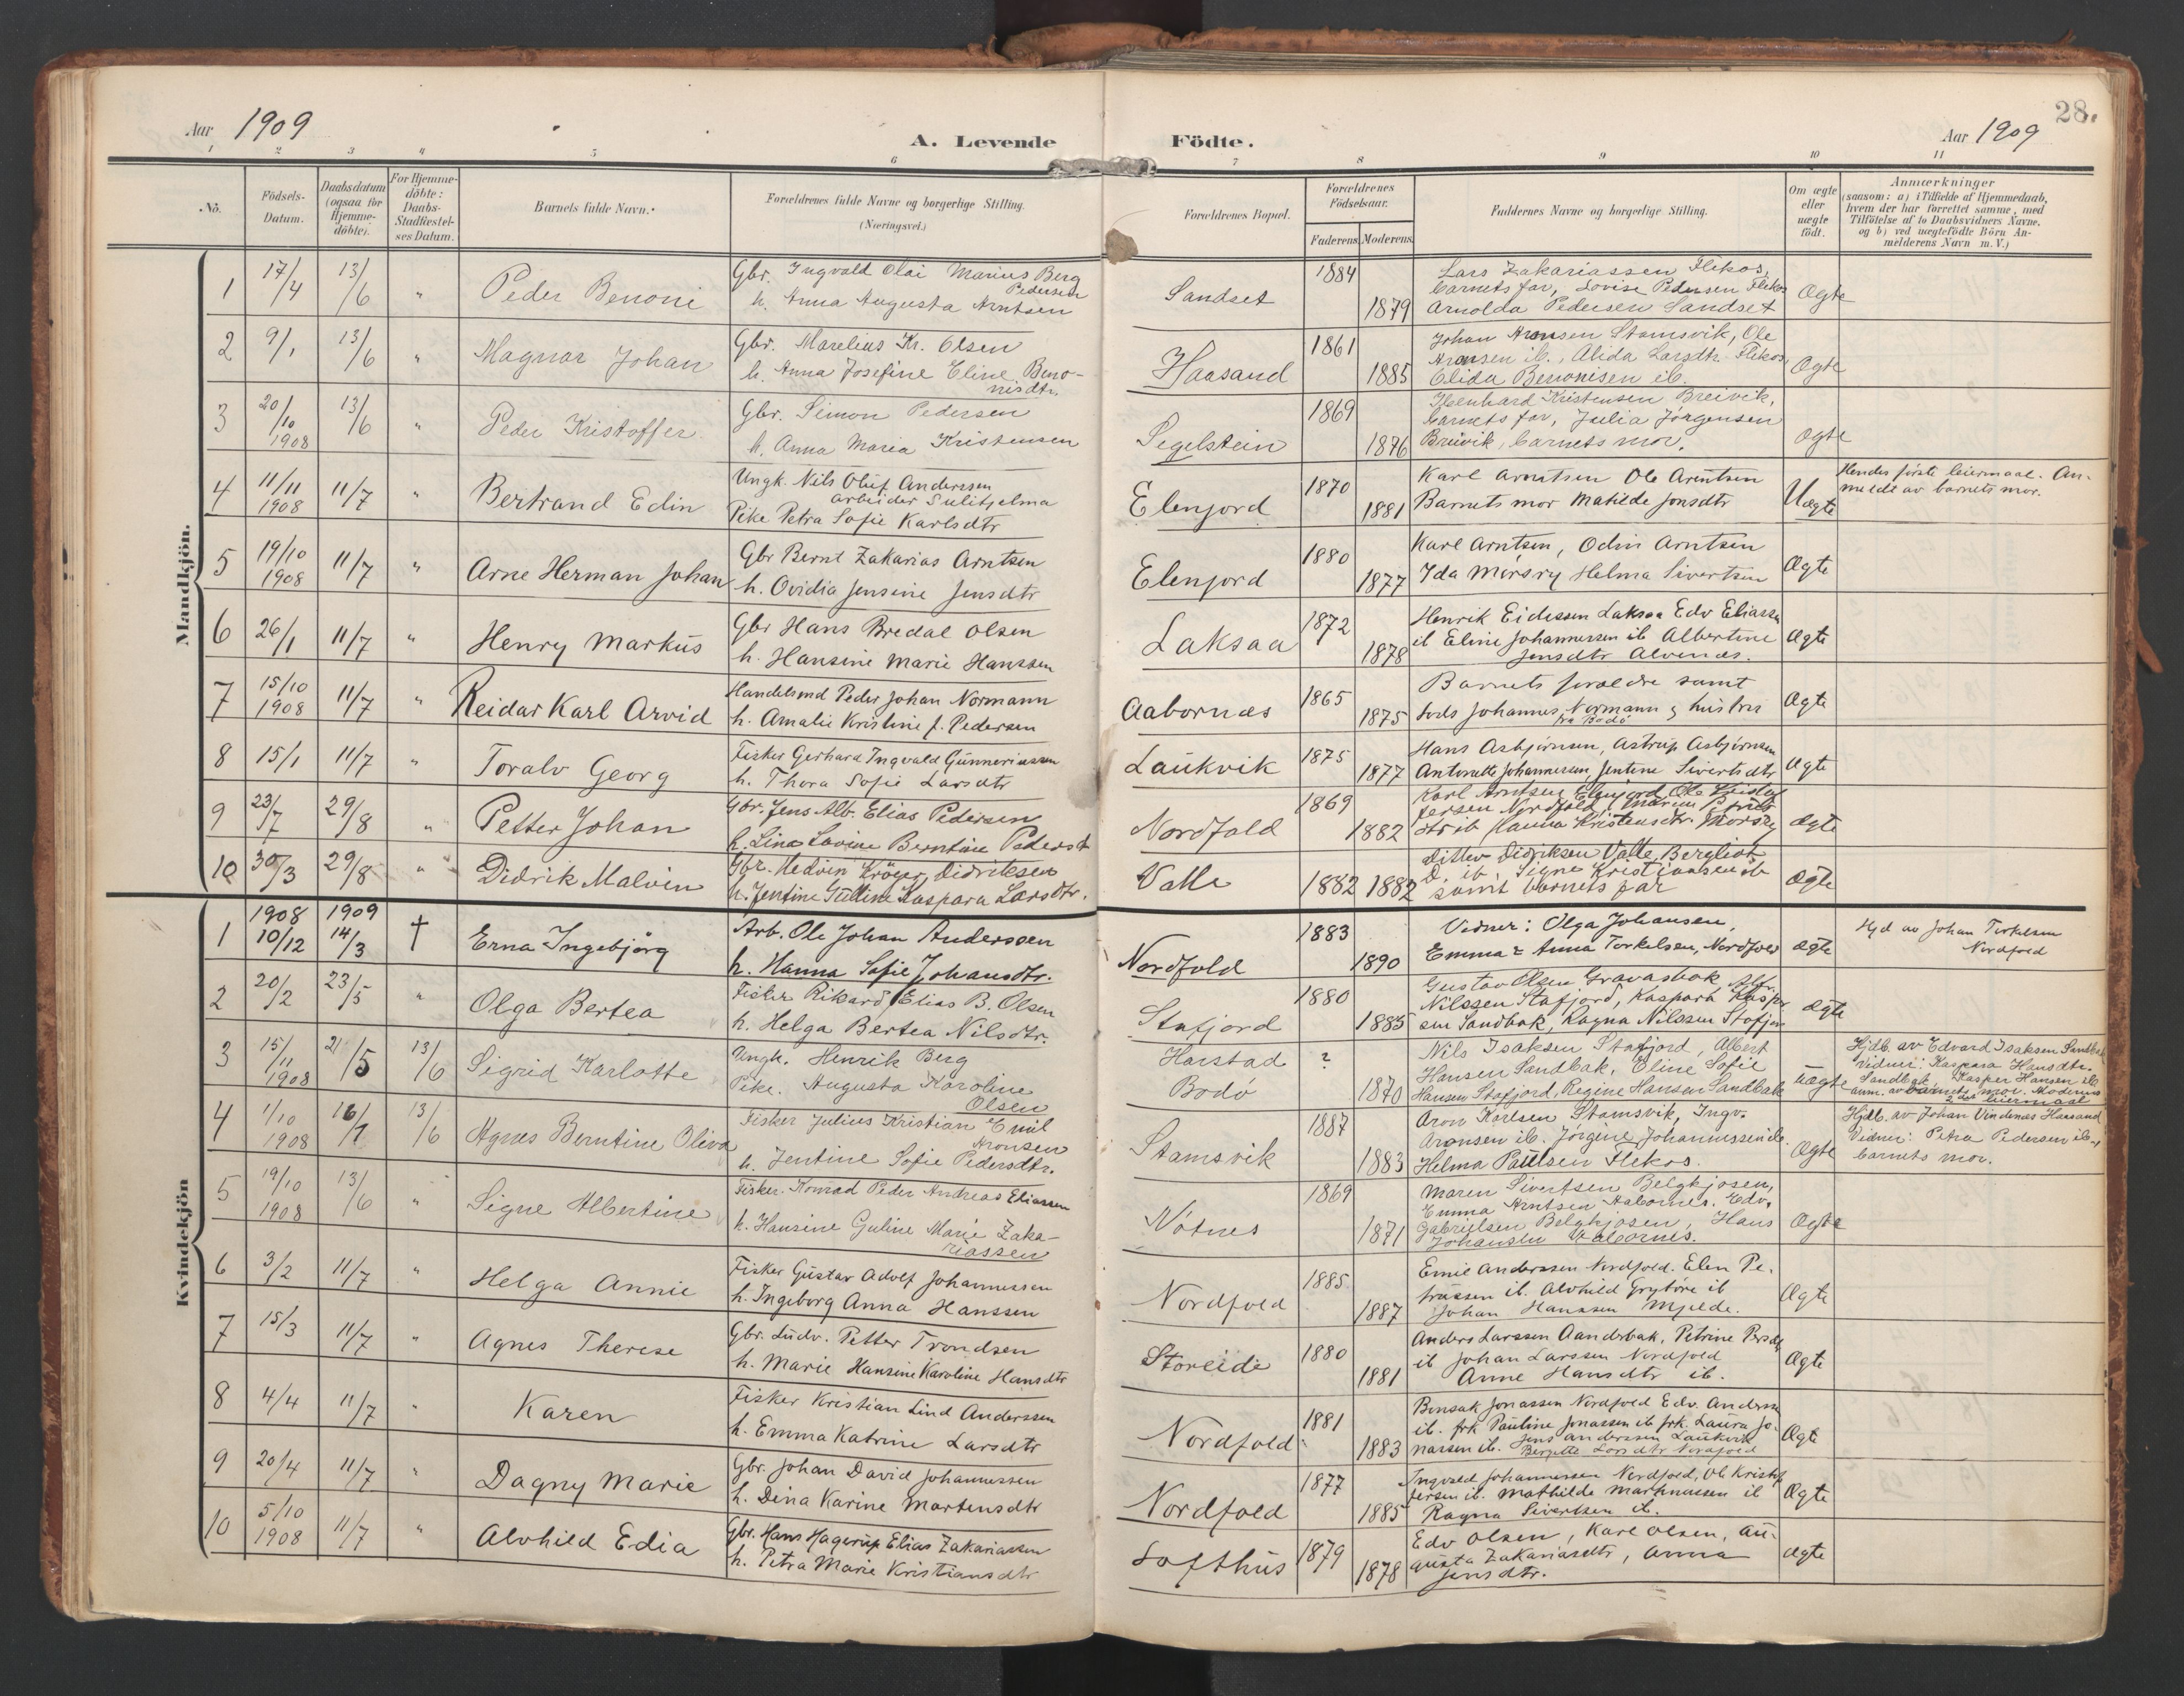 28.
Aar 1909
A. Levende
Födte.
Aar 1909
1 2 3 4 5 6 7 8 9 10 11
No.
Födsels-
Datum.
Daabsdatum
(ogsaa for
Hjemme-
döbte).
For Hjemme-
döbte:
Daabs-
Stadfæstel-
ses Datum.
Barnets fulde Navn.
Forældrenes fulde Navne og borgerlige Stilling.
(Næringsvei.)
Forældrenes Bopæl.
Forældrenes
Födselsaar.
Faderens. Moderens.
Faddernes Navne og borgerlige Stilling.
Om ægte
eller
uægte
födt.
Anmærkninger
(saasom: a) i Tilfælde af Hjemmedaab,
hvem der har forrettet samme, med
Tilföielse af to Daabsvidners Navne,
og b) ved uægtefödte Börn An-
melderens Navn m. V.)
Mandkjön.
1 17/4 13/6 " Peder Benoni
Gbr. Ingvald Olai Marius Berg
Pedersen
h. Anna Augusta Arntsen
Sandset 1884 1879
Lars Zakariassen Flekos,
barnets far, Lovise Pedersen Flekos
Arnolda Pedersen Sandset
Ægte
2 9/1 13/6 " Magnar Johan
Gbr. Marelius Kr. Olsen
h. Anna Josefine Eline Beno-
nisdtr.
Haasand 1861 1885
Johan Aronsen Stamsvik, Ole
Aronsen ib., Alida Larsdtr. Flekos
Elida Benonisen ib.
Ægte
3 20/10 1908 13/6 " Peder Kristoffer
Gbr. Simon Pedersen
h. Anna Maria Kristensen
Segelstein 1869 1876
Kristensen Breivik,
barnets far, Julia Jörgensen
Breivik, barnets mor.
Ægte
4 11/11 1908 11/7 " Bertrand Edin
Ungk. Nils Oluf Anderssen
arbeider Sulitjelma
Pike Petra Sofie Karlsdtr
Elenjord 1870 1881
Karl Arntsen Ole Arntsen
Barnets mor Matilde Jonsdtr
Uægte
Hendes første leiermaal. An-
meldt av barnets mor.
5 19/10 1908 11/7 " Arne Herman Johan
Gbr Bernt Zakarias Arntsen
h. Ovidia Jensine Jensdtr
Elenjord 1880 1877
Karl Arntsen, Odin Arntsen
Ida Mörsry Helma Sivertsen
Ægte
6 26/1 11/7 " Henry Markus
Gbr Hans Bredal Olsen
h. Hansine Marie Hanssen
Laksaa 1872 1878
Henrik Eidessen Laksaa Edv Eliassen
ib Eline Johannessen ib Albertine
Jensdtr Alvenæs.
Ægte
7 15/10 1908 11/7 " Reidar Karl Arvid
Handelsmd Peder Johan Normann
h. Amalie Kristine f. Pedersen
Aabornæs 1865 1875
Barnets foreldre samt
Johannes Normann & hustru
fra Bodö
Ægte
8 15/1 11/7 " Toralv Georg
Fisker Gerhard Ingvald Gunneriussen
h. Thora Sofie Larsdtr
Laukvik 1875 1877
Hans Asbjörnsen, Astrup Asbjörnsen
Antonette Johannessen, Jentine Sivertsdtr
Ægte
9 23/7 29/8 " Petter Johan
Gbr. Jens Alb. Elias Pedersen
h. Lina Lovine Berntine Pedersdt
Nordfold 1869 1882
Karl Arntsen Elenjord, Ole Kristof
fersen Nordfold,
ib Hanna Kristensdtr. Mörsry
Ægte
10 30/3 29/8 " Didrik Malvin
Gbr. Hedvin Kröger Didriksen
h. Jentine Gulline Kaspara Larsdtr.
Valle 1882 1882
Ditlev Didriksen Valle, Bergliot
D. ib, Signe Kristiansen ib
samt barnets far
Ægte
Kvindekjön
1 1908 10/12 1909 14/3 † Erna Ingebjörg
Arb. Ole Johan Anderssen
h. Hanna Sofie Johansdtr.
Nordfold 1883 1890
Vidner: Olga Johansen,
Emma & Anna Torkelsen, Nordfold
Ægte
Hjd av Johan Torkelsen
Nordfold
2 20/2 23/5 " Olga Bertea
Fisker Rikard Elias B. Olsen
h. Helga Bertea Nilsdtr.
Stafjord 1880 1885
Gustav Olsen Gravasbak,
Nilssen Stafjord, Kaspara Kasper
sen Sandbak, Ragna Nilssen Stafjord
Ægte
3 15/11 1908 21/5 13/6 Sigrid Karlotte
Ungk. Henrik Berg
Pike. Augusta Karoline
Olsen
Harstad
Bodö
? 1870
Nils Isaksen Stafjord, Albert
Hansen Sandbak, Eline Sofie
Hansen Stafjord, Regine Hansen Sandbak
Uægte
Hjdb. av Edvard Isaksen Sandbak
Vidner: Kaspara Hansdtr.
Sandbak, Kasper Hansen ib
anm. av barnets mor. Moderens
2det leiermaal
4 1/10 1908 16/1 13/6 Agnes Berntine Oliva
Fisker Julius Kristian Emil
Aronsen
h. Jentine Sofie Pedersdtr.
Stamsvik 1887 1883
Aron Karlsen Stamsvik, Ingv.
Aronsen ib. Jörgine Johannessen ib.
Helma Paulsen Flekos.
Ægte
Hjdb. av Johan Vindenæs Haasand
Vidner: Petra Pedersen ib.,
barnets mor.
5 19/10 1908 13/6 " Signe Albertine
Fisker. Konrad Peder Andreas Eliassen
h. Hansine Guline Marie Zaka-
riassen
Nötnes 1869 1871
Maren Sivertsen Belgkjosen,
Emma Arntsen Aabornes. Edv.
Gabrielsen Belgkjosen, Hans
Johansen Aabornes.
Ægte
6 3/2 11/7 " Helga Annie
Fisker Gustav Adolf Johannessen
h. Ingeborg Anna Hanssen
Nordfold 1885 1887
Emil Anderssen Nordfold. Elen Pe-
trussen ib. Alvhild Grytöre ib
Johan Hanssen Mjelde.
Ægte
7 15/3 11/7 " Agnes Therese
Gbr. Ludv. Petter Trondsen
h. Marie Hansine Karoline Hansdtr
Storeide 1880 1881
Anders Larssen Aanderbak, Petrine
ib Johan Larssen Nordfold
Anne Hansdtr ib.
Ægte
8 4/4 11/7 " Karen
Fisker Kristian Lind Anderssen
h. Emma Katrine Larsdtr
Nordfold 1881 1883
Bensak Jonassen Nordfold Edv. Anderssen
ib. frk Pauline Jonassen ib frk. Laura Jo-
nassen ib. Jens Anderssen Laukvik
Bergitte Larsdtr Nordfold
Ægte
9 20/4 11/7 " Dagny Marie
Gbr. Johan David Johannessen
h. Dina Karine Martensdtr
Nordfold 1877 1885
Ingvald Johannessen Nordfold, Ole Kristof
fersen ib. Mathilde Markussen ib
Ragna Sivertsen ib.
Ægte
10 5/10 1908 11/7 " Alvhild Edia
Gbr. Hans Hagerup Elias Zakariassen
h. Petra Marie Kristiansdtr
Lofthus 1879 1878
Edv Olsen, Karl Olsen, Au-
gusta Zakariasdtr, Anna
Jensdtr.
Ægte